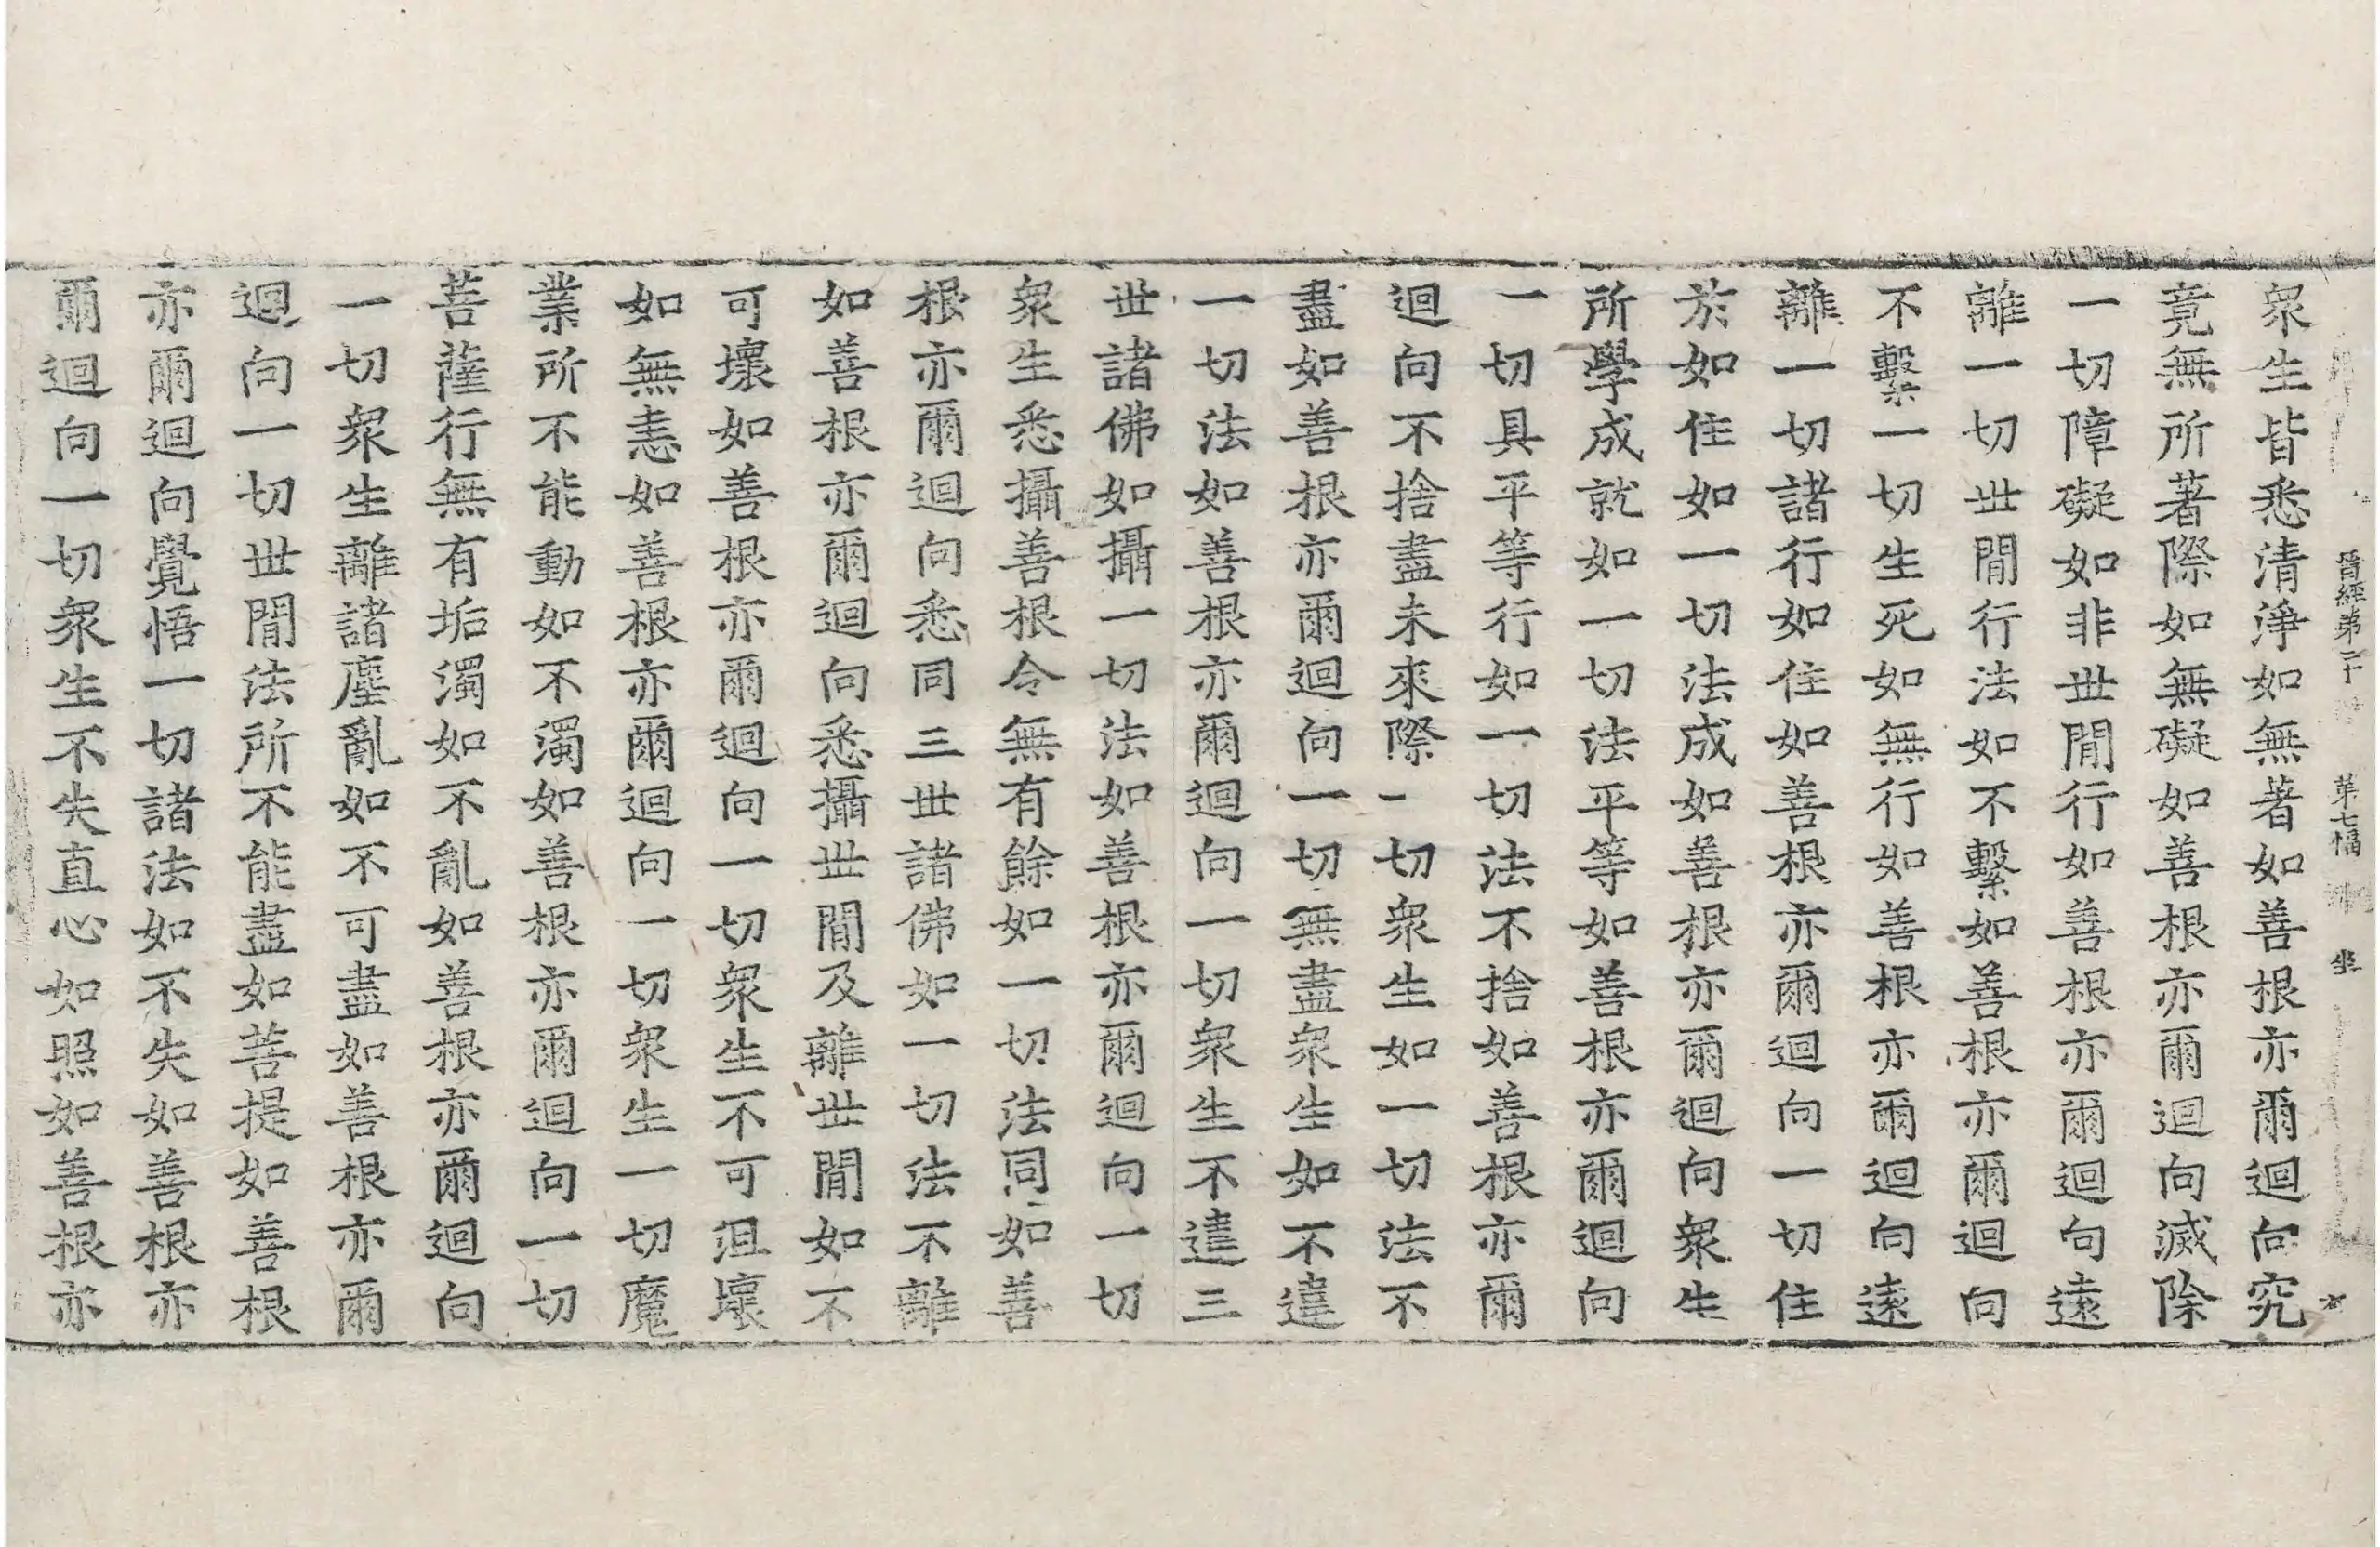 晋經第二十 第七幅 坐
衆生皆悉清淨如無著如善根亦爾迴向究
竟無所著際如無礙如善根亦爾迴向滅除
一切障礙如非丗閒行如善根亦爾迴向遠
離一切丗閒行法如不繫如善根亦爾迴向
不繫一切生死如無行如善根亦爾迴向遠
離一切諸行如住如善根亦爾迴向一切住
於如住如一切法成如善根亦爾迴向衆生
所學成就如一切法平等如善根亦爾迴向
一切具平等行如一切法不捨如善根亦爾
迴向不捨盡未來際一切衆生如一切法不
盡如善根亦爾迴向一切無盡衆生如不違
一切法如善根亦爾迴向一切衆生不違三
丗諸佛如攝一切法如善根亦爾迴向一切
衆生悉攝善根令無有餘如一切法同如善
根亦爾迴向悉同三丗諸佛如一切法不離
如善根亦爾迴向悉攝丗閒及離丗閒如不
可壞如善根亦爾迴向一切衆生不可沮壞
如無恚如善根亦爾迴向一切衆生一切魔
業所不能動如不濁如善根亦爾迴向一切
菩薩行無有垢濁如不亂如善根亦爾迴向
一切衆生離諸塵亂如不可盡如善根亦爾
迴向一切丗閒法所不能盡如菩提如善根
亦爾迴向覺悟一切諸法如不失如善根亦
爾迴向一切衆生不失直心如照如善根亦